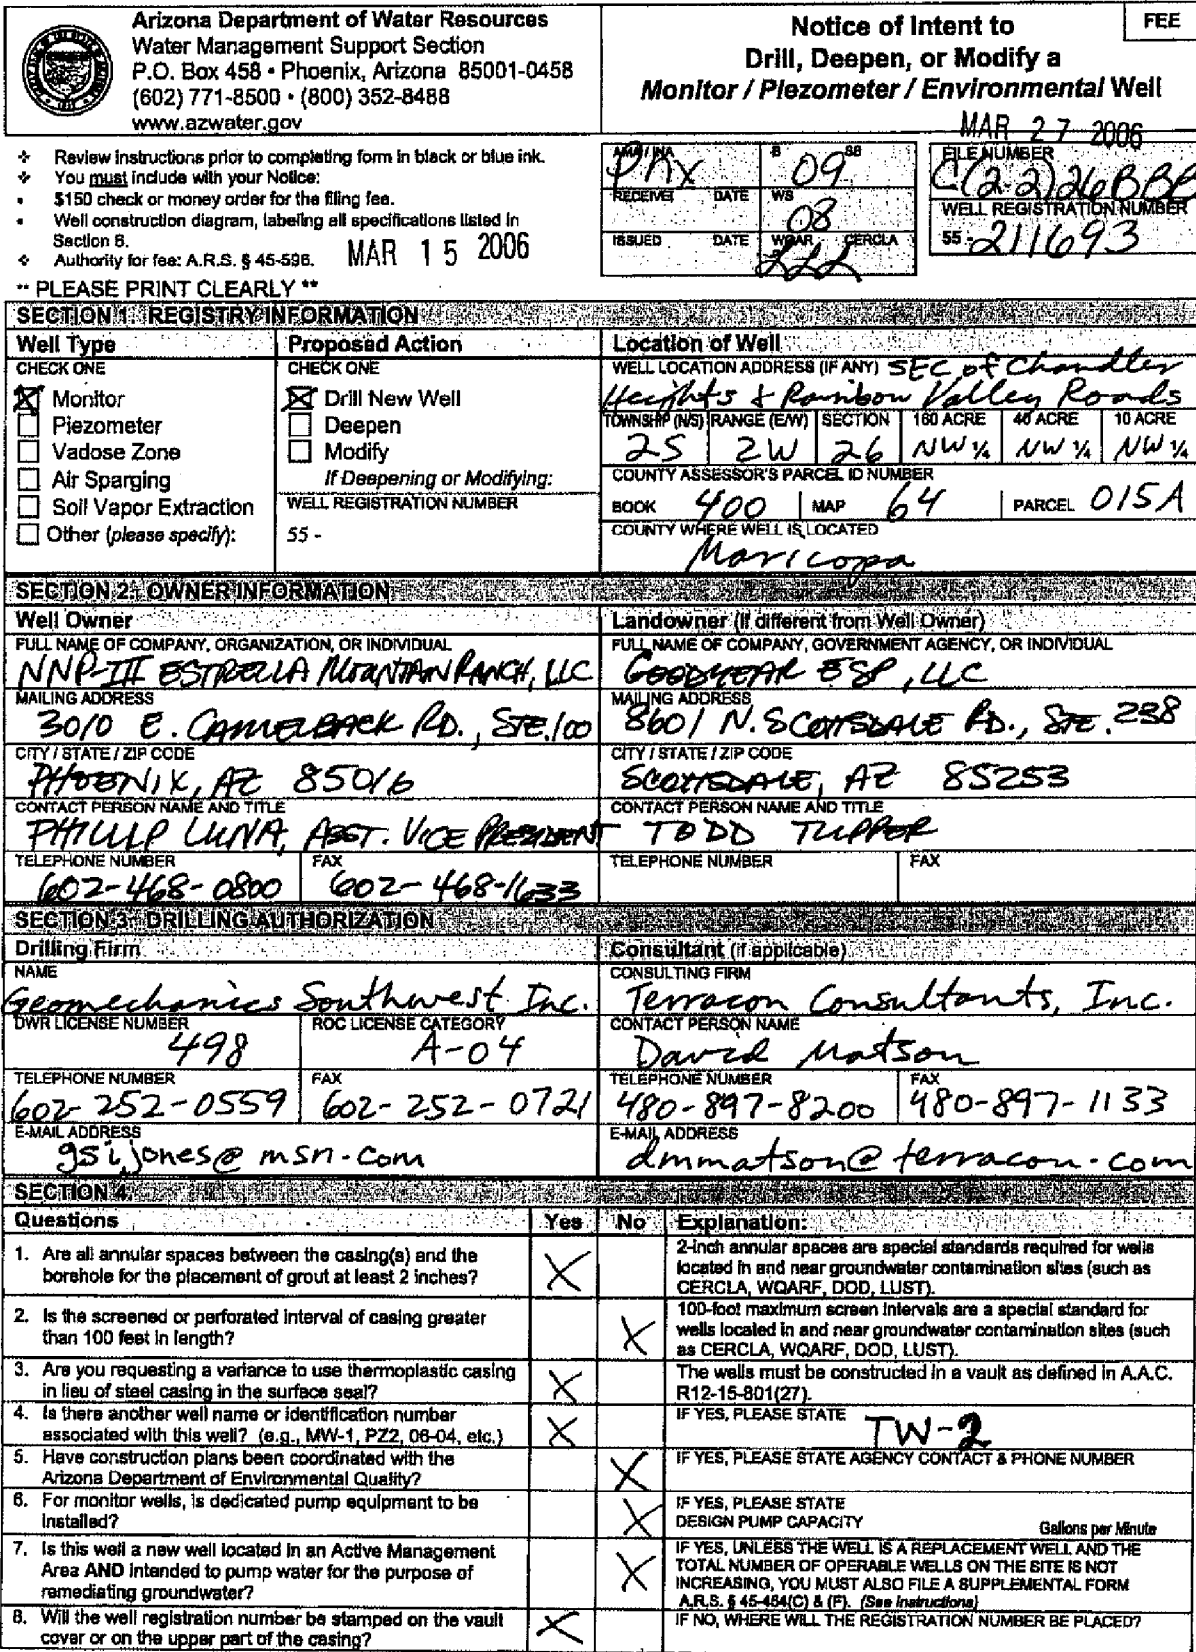 Arizona Department of Water Resources
Water Management Support Section
P.O. Box 458 • Phoenix, Arizona 85001-0458
(602) 771-8500 • (800) 352-8488
www.azwater.gov
Notice of Intent to
Drill, Deepen, or Modify a
Monitor / Piezometer / Environmental Well
FEE
MAR 27 2006
❖ Review instructions prior to completing form in black or blue ink.
❖ You must include with your Notice:
• $150 check or money order for the filing fee.
• Well construction diagram, labeling all specifications listed in
Section 6.
❖ Authority for fee: A.R.S. § 45-596.
MAR 15 2006
** PLEASE PRINT CLEARLY **
AMA / INA B SB
PHX 09
RECEIVED DATE WS
08
ISSUED DATE WQAR CERCLA
FILE NUMBER
C(2-2)26BBB
WELL REGISTRATION NUMBER
55 - 211693
SECTION 1. REGISTRY INFORMATION
Well Type
CHECK ONE
Monitor
Piezometer
Vadose Zone
Air Sparging
Soil Vapor Extraction
Other (please specify):
Proposed Action
CHECK ONE
Drill New Well
Deepen
Modify
If Deepening or Modifying:
WELL REGISTRATION NUMBER
55 -
Location of Well
WELL LOCATION ADDRESS (IF ANY) SEC of Chandler
Heights & Rainbow Valley Roads
TOWNSHIP (N/S) RANGE (E/W) SECTION 160 ACRE 40 ACRE 10 ACRE
2S 2W 26 NW ¼ NW ¼ NW ¼
COUNTY ASSESSOR'S PARCEL ID NUMBER
BOOK 400 MAP 64 PARCEL 015A
COUNTY WHERE WELL IS LOCATED
Maricopa
SECTION 2. OWNER INFORMATION
Well Owner
FULL NAME OF COMPANY, ORGANIZATION, OR INDIVIDUAL
NNP-III ESTRELLA MOUNTAIN RANCH, LLC
MAILING ADDRESS
3010 E. CAMELBACK RD., STE.100
CITY / STATE / ZIP CODE
PHOENIX, AZ 85016
CONTACT PERSON NAME AND TITLE
PHILLIP LUNA, ASST. VICE PRESIDENT
TELEPHONE NUMBER FAX
602-468-0800 602-468-1633
Landowner (if different from Well Owner)
FULL NAME OF COMPANY, GOVERNMENT AGENCY, OR INDIVIDUAL
GOODYEAR ESP, LLC
MAILING ADDRESS
8601 N. SCOTTSDALE RD., STE. 238
CITY / STATE / ZIP CODE
SCOTTSDALE, AZ 85253
CONTACT PERSON NAME AND TITLE
TODD TUPPER
TELEPHONE NUMBER FAX
SECTION 3. DRILLING AUTHORIZATION
Drilling Firm
NAME
Geomechanics Southwest Inc.
DWR LICENSE NUMBER ROC LICENSE CATEGORY
498 A-04
TELEPHONE NUMBER FAX
602-252-0559 602-252-0721
E-MAIL ADDRESS
gsijones@msn.com
Consultant (if applicable)
CONSULTING FIRM
Terracon Consultants, Inc.
CONTACT PERSON NAME
David Matson
TELEPHONE NUMBER FAX
480-897-8200 480-897-1133
E-MAIL ADDRESS
dmmatson@terracon.com
SECTION 4.
Questions Yes No Explanation:
1. Are all annular spaces between the casing(s) and the
borehole for the placement of grout at least 2 inches?
X
2-inch annular spaces are special standards required for wells
located in and near groundwater contamination sites (such as
CERCLA, WQARF, DOD, LUST).
2. Is the screened or perforated interval of casing greater
than 100 feet in length?
X
100-foot maximum screen intervals are a special standard for
wells located in and near groundwater contamination sites (such
as CERCLA, WQARF, DOD, LUST).
3. Are you requesting a variance to use thermoplastic casing
in lieu of steel casing in the surface seal?
X
The wells must be constructed in a vault as defined in A.A.C.
R12-15-801(27).
4. Is there another well name or identification number
associated with this well? (e.g., MW-1, PZ2, 06-04, etc.)
X
IF YES, PLEASE STATE
TW-2
5. Have construction plans been coordinated with the
Arizona Department of Environmental Quality?
X
IF YES, PLEASE STATE AGENCY CONTACT & PHONE NUMBER
6. For monitor wells, is dedicated pump equipment to be
installed?
X
IF YES, PLEASE STATE
DESIGN PUMP CAPACITY Gallons per Minute
7. Is this well a new well located in an Active Management
Area AND intended to pump water for the purpose of
remediating groundwater?
X
IF YES, UNLESS THE WELL IS A REPLACEMENT WELL AND THE
TOTAL NUMBER OF OPERABLE WELLS ON THE SITE IS NOT
INCREASING, YOU MUST ALSO FILE A SUPPLEMENTAL FORM
A.R.S. § 45-454(C) & (F). (See Instructions)
8. Will the well registration number be stamped on the vault
cover or on the upper part of the casing?
X
IF NO, WHERE WILL THE REGISTRATION NUMBER BE PLACED?